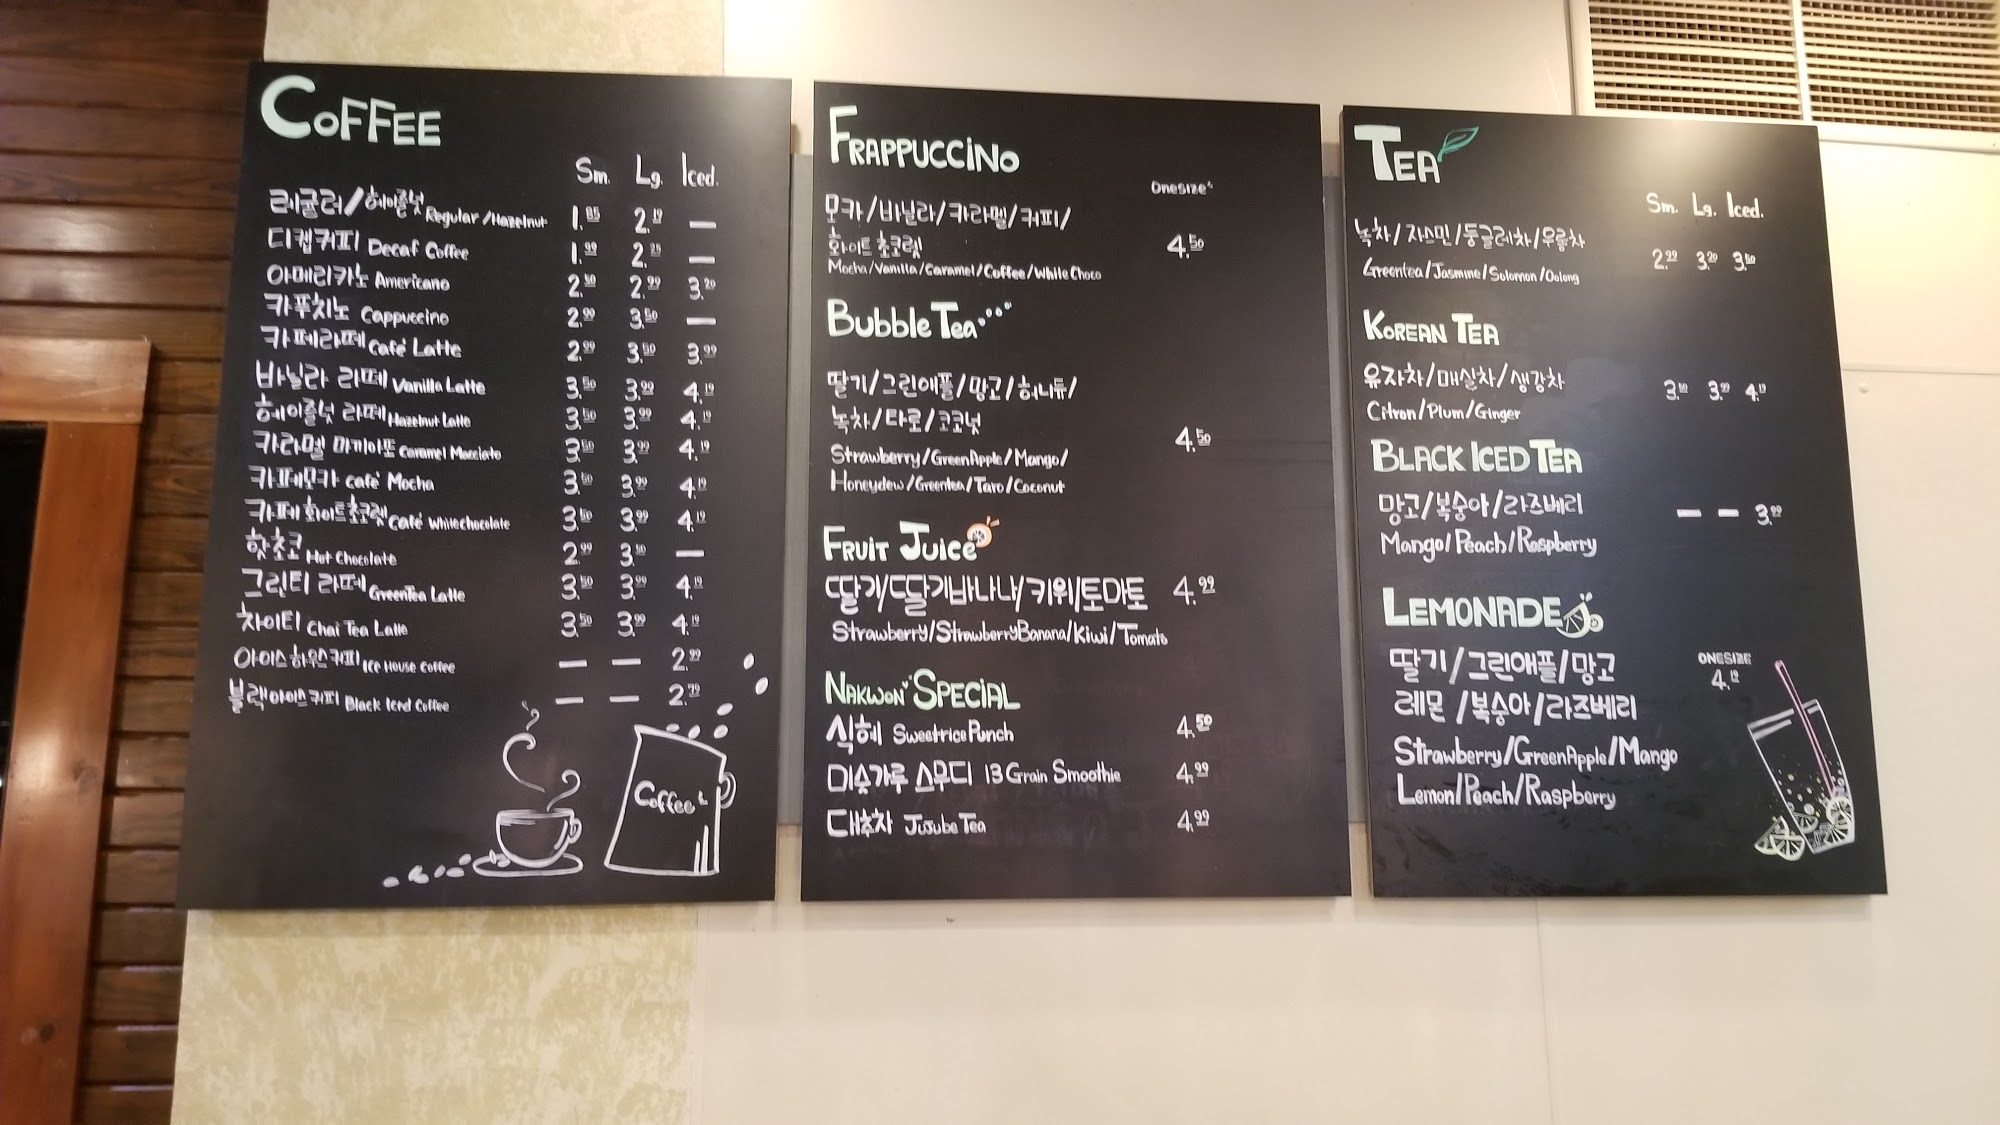 COFFEE
Sm. Lg. Iced.
레귤러/헤이즐넛 Regular/Hazelnut 1.85 2.19 —
디켑커피 Decaf Coffee 1.99 2.25 —
아메리카노 Americano 2.50 2.99 3.20
카푸치노 Cappuccino 2.99 3.50 —
카페라떼 Café Latte 2.99 3.50 3.99
바닐라 라떼 Vanilla Latte 3.50 3.99 4.19
헤이즐넛 라떼 Hazelnut Latte 3.50 3.99 4.19
카라멜 마끼아또 Caramel Macciato 3.50 3.99 4.19
카페모카 Café Mocha 3.50 3.99 4.19
카페 화이트초코렛 Café Whitechocolate 3.50 3.99 4.19
핫초코 Hot Chocolate 2.99 3.50 —
그린티 라떼 GreenTea Latte 3.50 3.99 4.19
차이티 Chai Tea Latte 3.50 3.99 4.19
아이스하우스커피 Ice House Coffee — — 2.99
블랙아이스커피 Black Iced Coffee — — 2.79
Coffee
FRAPPUCCINO
ONESIZE
모카/바닐라/카라멜/커피/
화이트 초코렛 4.50
Mocha/Vanilla/Caramel/Coffee/White Choco
Bubble Tea
딸기/그린애플/망고/허니듀/
녹차/타로/코코넛 4.50
Strawberry/GreenApple/Mango/
Honeydew/Greentea/Taro/Coconut
FRUIT JUICE
딸기/딸기바나나/키위/토마토 4.99
Strawberry/StrawberryBanana/Kiwi/Tomato
NAKWON SPECIAL
식혜 Sweetrice Punch 4.50
미숫가루 스무디 13 Grain Smoothie 4.99
대추차 JuJube Tea 4.99
TEA
Sm. Lg. Iced.
녹차/자스민/둥글레차/우롱차 2.99 3.20 3.50
Greentea/Jasmine/Solomon/Oolong
KOREAN TEA
유자차/매실차/생강차 3.50 3.99 4.19
Citron/Plum/Ginger
BLACK ICED TEA
망고/복숭아/라즈베리 — — 3.99
Mango/Peach/Raspberry
LEMONADE
딸기/그린애플/망고 ONESIZE
레몬/복숭아/라즈베리 4.19
Strawberry/GreenApple/Mango
Lemon/Peach/Raspberry